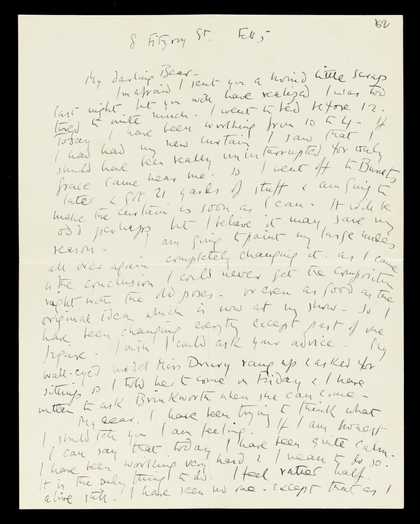 8 Fitzroy St. Feb 5
My darling Bear-
I'm afraid I sent you a horrid little scrap
last night but you will have realized I was too
tired to write much. I went to bed before 12. 
today I have been working from 10 to 4. If
I had had my new curtain I saw that I
should have been really uninterrupted for only
Grace came near me. So I went off to Burnets
later & got 21 yards of stuff & am going to
make the curtains as soon as I can. It will be
odd perhaps but I believe it may save my
reason. I am going to paint my large nudes
all over again completely changing it. as I came
to the conclusion I could never get the composition
right with the old poses. or even as good as the
original idea which is now at my show. So I
have been changing everything except part of one
figure. I wish I could ask your advice. My
wall-eyed model Miss Drury rang up & asked for
sittings so I told her to come on Friday & I have
written to ask Brinkworth when she can come.
My dear. I have been trying to think what
I should tell you I am feeling. If I am honest
I can say that today I have been quite calm.
I have been working very hard & I mean to do so.
it is the only thing to do. I feel rather half
alive still. I have seen no one. except that as I